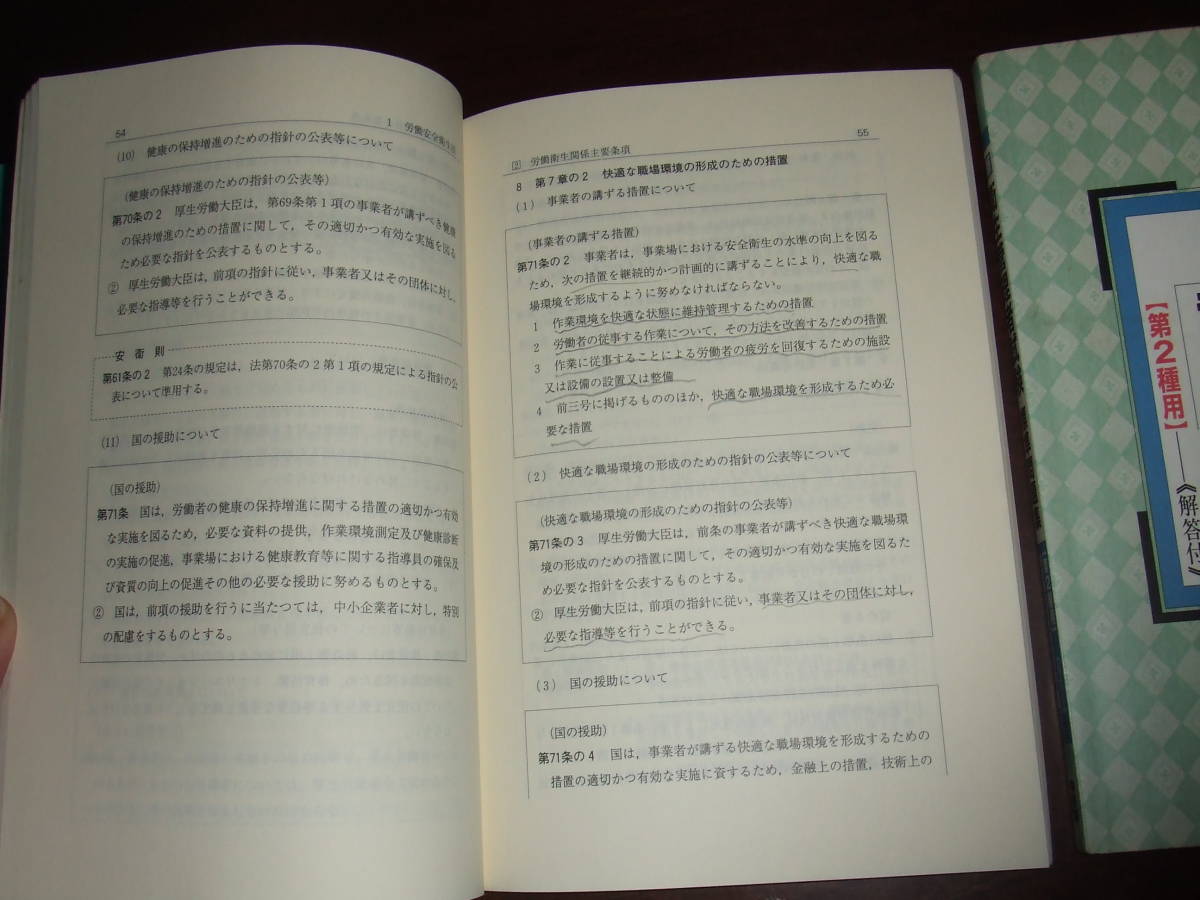 54
1 労働安全衛生法
(10) 健康の保持増進のための指針の公表等について
(健康の保持増進のための指針の公表等)
第70条の2 厚生労働大臣は，第69条第1項の事業者が講ずべき健康
の保持増進のための措置に関して，その適切かつ有効な実施を図る
ため必要な指針を公表するものとする。
② 厚生労働大臣は，前項の指針に従い，事業者又はその団体に対し，
必要な指導等を行うことができる。
安衛則
第61条の2 第24条の規定は，法第70条の2第1項の規定による指針の公
表について準用する。
(11) 国の援助について
(国の援助)
第71条 国は，労働者の健康の保持増進に関する措置の適切かつ有効
な実施を図るため，必要な資料の提供，作業環境測定及び健康診断
の実施の促進，事業場における健康教育等に関する指導員の確保及
び資質の向上の促進その他の必要な援助に努めるものとする。
② 国は，前項の援助を行うに当たつては，中小企業者に対し，特別
の配慮をするものとする。
55
2 労働衛生関係主要条項
8 第7章の2 快適な職場環境の形成のための措置
(1) 事業者の講ずる措置について
(事業者の講ずる措置)
第71条の2 事業者は，事業場における安全衛生の水準の向上を図る
ため，次の措置を継続的かつ計画的に講ずることにより，快適な職
場環境を形成するように努めなければならない。
1 作業環境を快適な状態に維持管理するための措置
2 労働者の従事する作業について，その方法を改善するための措置
3 作業に従事することによる労働者の疲労を回復するための施設
又は設備の設置又は整備
4 前三号に掲げるもののほか，快適な職場環境を形成するため必
要な措置
(2) 快適な職場環境の形成のための指針の公表等について
(快適な職場環境の形成のための指針の公表等)
第71条の3 厚生労働大臣は，前条の事業者が講ずべき快適な職場環
境の形成のための措置に関して，その適切かつ有効な実施を図るた
め必要な指針を公表するものとする。
② 厚生労働大臣は，前項の指針に従い，事業者又はその団体に対し，
必要な指導等を行うことができる。
(3) 国の援助について
(国の援助)
第71条の4 国は，事業者が講ずる快適な職場環境を形成するための
措置の適切かつ有効な実施に資するため，金融上の措置，技術上の
【第2種用】
《解答付》